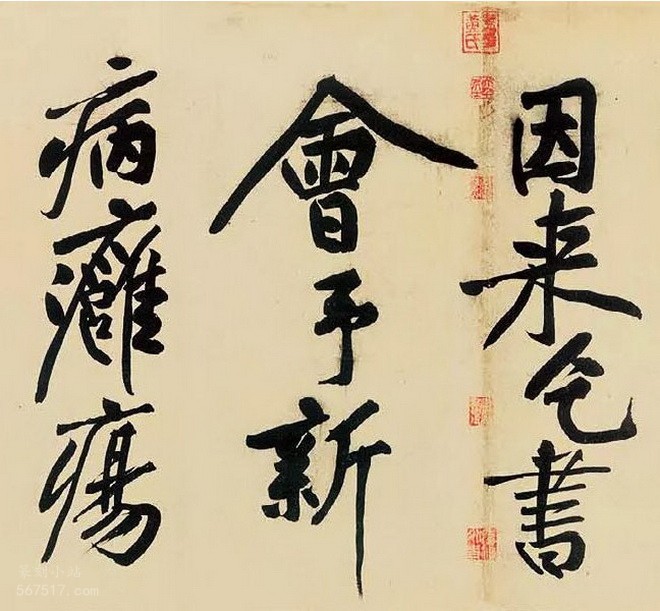 因来乞書
會予新
病癰瘍
567517.com